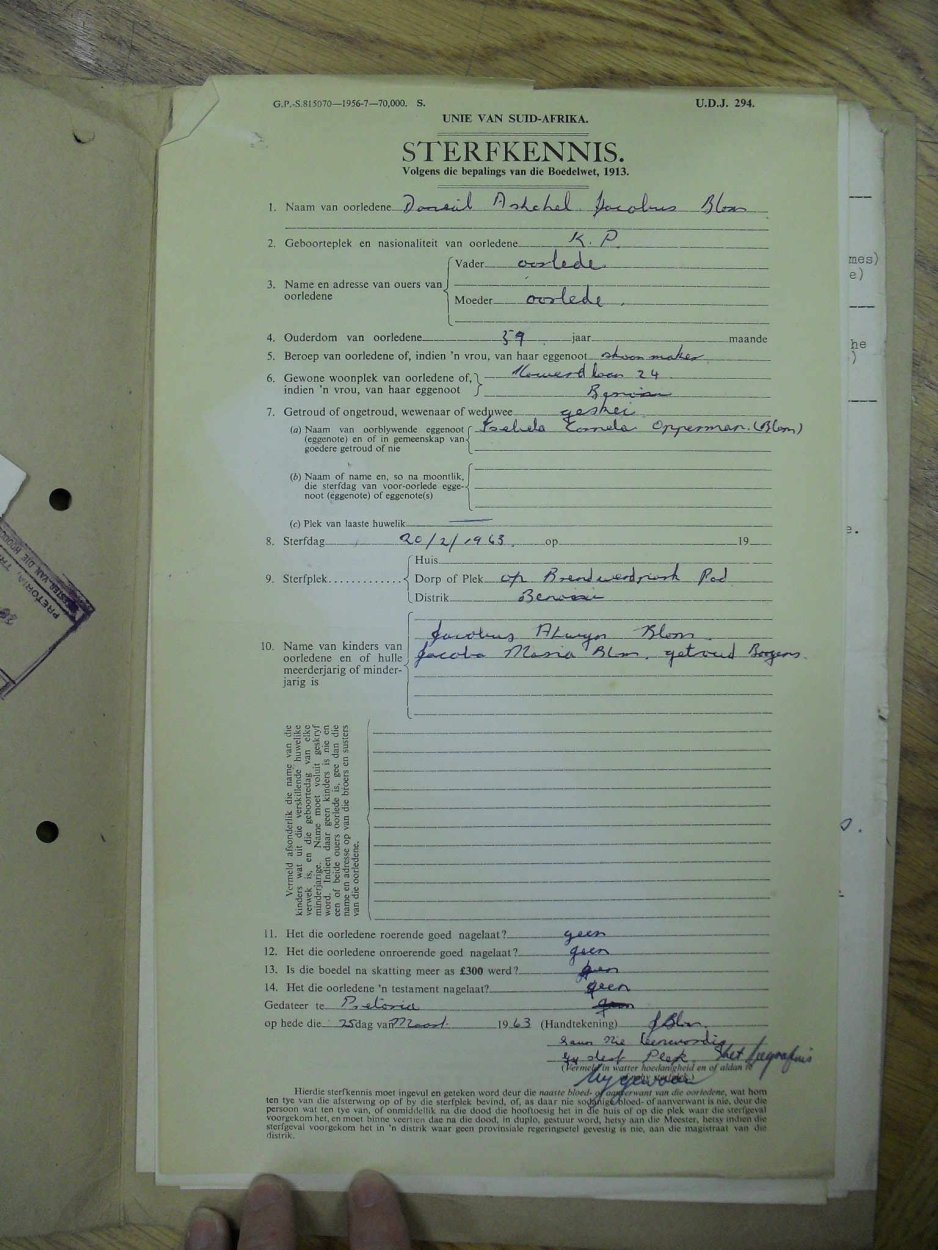 G.P.-S.815070—1956-7—70,000. S. U.D.J. 294.
UNIE VAN SUID-AFRIKA.
STERFKENNIS.
Volgens die bepalings van die Boedelwet, 1913.
1. Naam van oorledene Jacobus Blom
2. Geboorteplek en nasionaliteit van oorledene K.P.
3. Name en adresse van ouers van oorledene
Vader oorlede
Moeder oorlede
4. Ouderdom van oorledene 59 jaar maande
5. Beroep van oorledene of, indien 'n vrou, van haar eggenoot skoonmaker
6. Gewone woonplek van oorledene of, indien 'n vrou, van haar eggenoot 24
7. Getroud of ongetroud, wewenaar of weduwee geskei
(a) Naam van oorblywende eggenoot (eggenote) en of in gemeenskap van goedere getroud of nie Opperman (Blom)
(b) Naam of name en, so na moontlik, die sterfdag van voor-oorlede egge-noot (eggenote) of eggenote(s)
(c) Plek van laaste huwelik
8. Sterfdag 20/2/1963 op 19
9. Sterfplek
Huis
Dorp of Plek op Pad
Distrik
10. Name van kinders van oorledene en of hulle meerderjarig of minder-jarig is
Jacobus Alwyn Blom
Jacoba Maria Blom, getroud
Vermeld afsonderlik die name van die
kinders wat uit die verskillende huwelike
verwek is, en die geboortedag van elke
minderjarige. Name moet voluit geskryf
word. Indien daar geen kinders is nie en
een of beide ouers oorlede is, gee dan die
name en adresse op van die broers en susters
van die oorledene.
11. Het die oorledene roerende goed nagelaat? geen
12. Het die oorledene onroerende goed nagelaat? geen
13. Is die boedel na skatting meer as £300 werd? geen
14. Het die oorledene 'n testament nagelaat? geen
Gedateer te Pretoria
op hede die 25 dag van Maart 1963 (Handtekening) J Blom
(Vermeld in watter hoedanigheid en of aldan te
Hierdie sterfkennis moet ingevul en geteken word deur die naaste bloed- of aanverwant van die oorledene, wat hom
ten tye van die afsterwing op of by die sterfplek bevind, of, as daar nie sodanige bloed- of aanverwant is nie, deur die
persoon wat ten tye van, of onmiddellik na die dood die hooftoesig het in die huis of op die plek waar die sterfgeval
voorgekom het, en moet binne veertien dae na die dood, in duplo, gestuur word, hetsy aan die Meester, hetsy indien die
sterfgeval voorgekom het in 'n distrik waar geen provinsiale regeringsetel gevestig is nie, aan die magistraat van die
distrik.